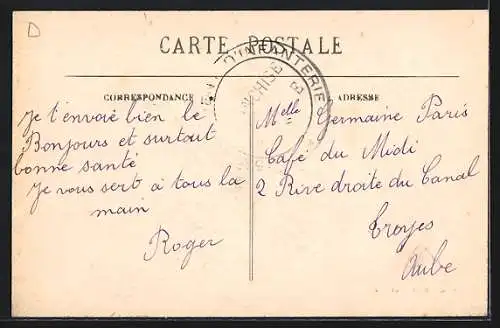 D
CARTE POSTALE
D'INFANTERIE
FRANCHISE
CORRESPONDANCE
ADRESSE
Je t'envoie bien le
Bonjours et surtout
bonne santé
Je vous sert a tous la
main
Roger
Melle Germaine Paris
Café du Midi
2 Rive droite du Canal
Troyes
Aube